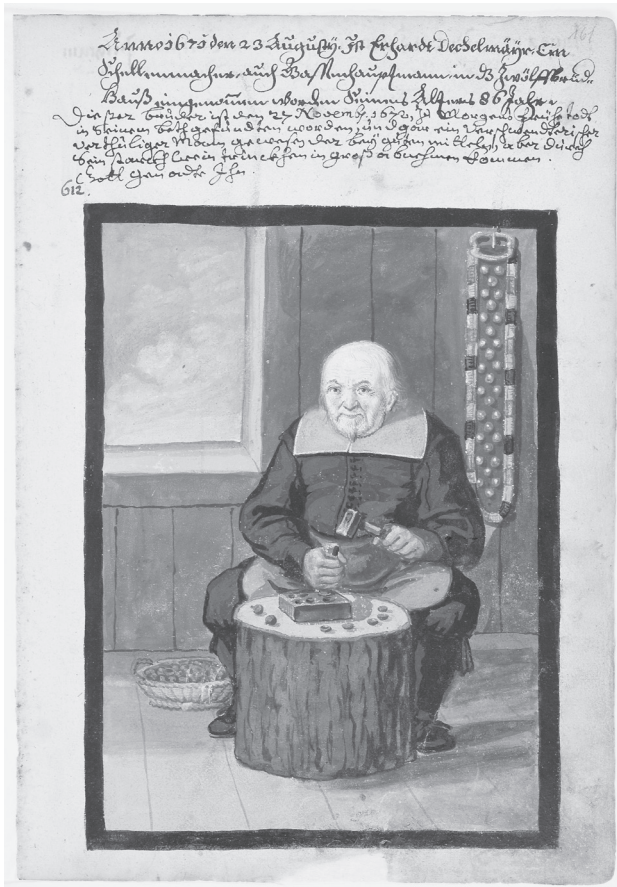 161
Anno 1671 den 23 Augusty. Ist Erhardt Dechelmäyr. Ein
Schellenmacher auch Gassenhauptmann in d Zwölffbrüd-
Hauß eingenommen worden Seines Alters 86 Jahr.
Dießer bruder ist den 27 Novemb. 1672, Zu Morgens fruhe todt
in seinem beth gefundten worden, und gar ein verschwenderischer
verthuliger Mann gewesen der bey guten mittelen, aber durch
sein starckh trinckhen in groß abnehmen kommen.
Gott genadte Ihn.
612.